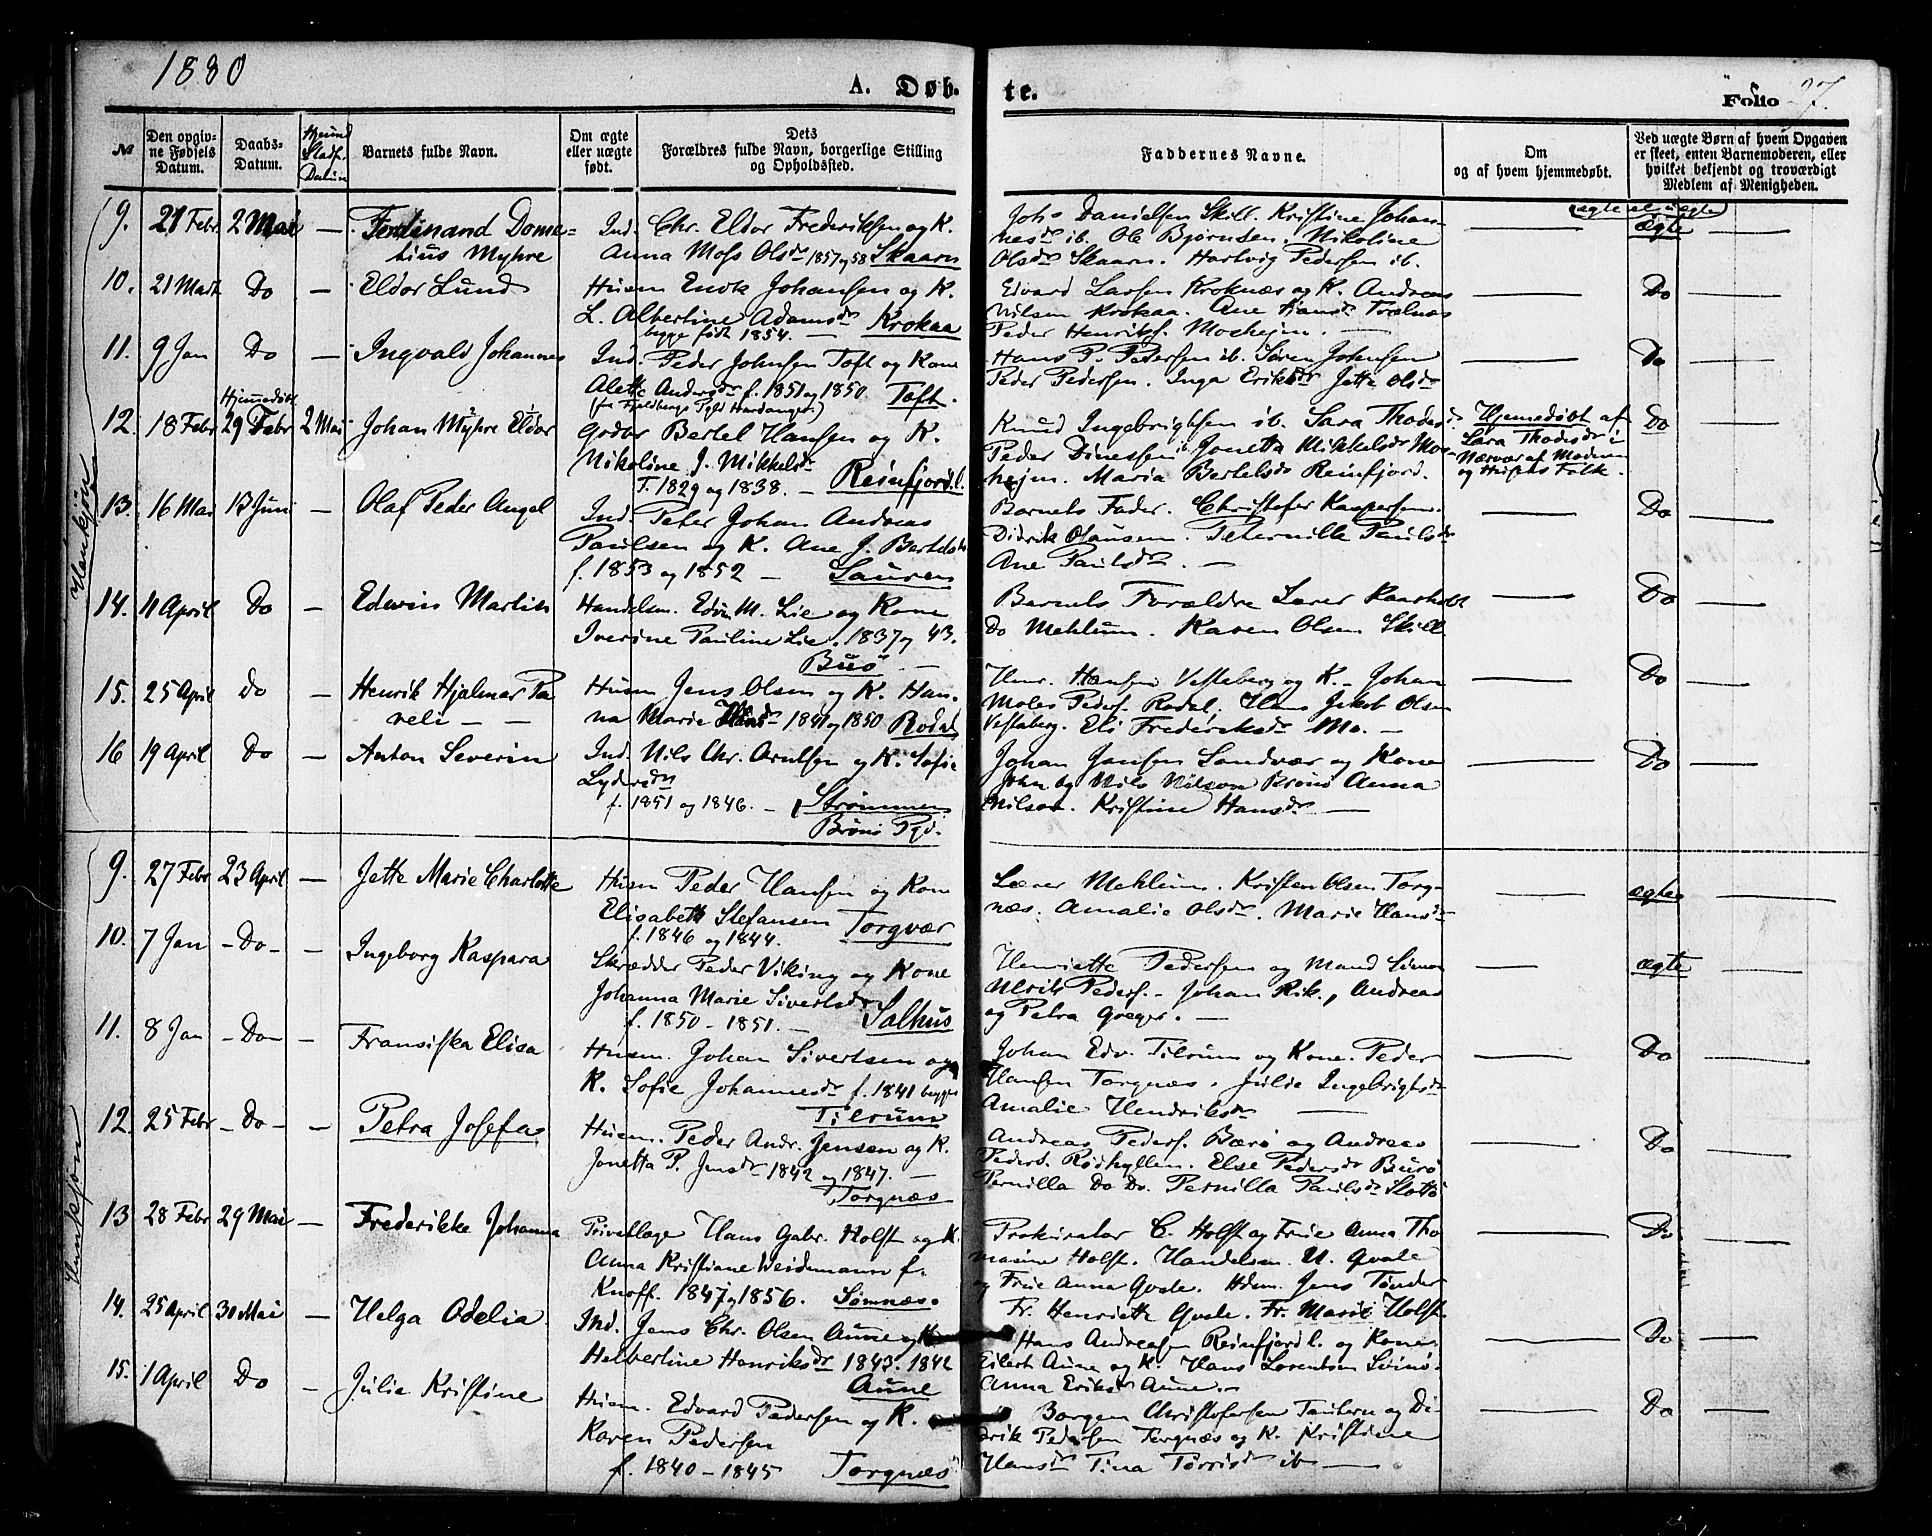 1880
A. Døb-
te.
Folio 27.
№
Den opgiv-
ne Fødsels
Datum.
Daabs-
Datum.
Barnets fulde Navn.
Om ægte
eller uægte
født.
Dets
Forældres fulde Navn, borgerlige Stilling
og Opholdssted.
Faddernes Navne.
Om
og af hvem hjemmedøbt.
Ved uægte Børn af hvem Opgaven
er skeet, enten Barnemoderen, eller
hvilket bekjendt og troværdigt
Medlem af Menigheden.
Hankjøn
9. 21 Febr 2 Mai — Ferdinand Dome-
tius Myhre
Ind. Chr. Eldor Frederiksen og K.
Anna Moss Olsdr 1857 og 58 Skaarn
Johs Danielsen Skill. Kristine Johan-
nesdr ib. Ole Bjørnsen. Nikoline
Olsdr Skaarn. Hartvig Pedersen ib.
ægte
10. 21 Marts Do — Eldor Lund
Husm Enok Johansen og K.
L. Albertine Adamsdr Krokaa
begge født 1854.
Edvard Larsen Kroknæs og K. Andreas
Nilsen Krokaa. Ane Hansdr Trælnæs
Peder Henriks. Moshejm. —
Do
11. 9 Jan Do — Ingvald Johannes
Ind. Peder Johnsen Toft og Kone
Alette Andersdr f. 1851 og 1850 Toft.
(fra Fjeldbergs Pgld Hardanger)
Hans P. Pedersen ib. Søren Johnsen
Peder Pedersen. Inga Eriksdr Jette Olsdr
Do
Hjemmedøbt
12. 18 Febr 29 Febr 2 Mai Johan Myhre Eldor
Gaardbr Bertel Hansen og K.
Nikoline J. Mikkelsdr
f. 1829 og 1838. — Reinfjord l.
Knud Ingebrigtsen ib. Sara Thodesdr
Peder Dinessen ib Jonetta Mikkelsdr Mos-
hejm. Maria Bertelsdr Reinfjord.
Hjemmedøbt af
Sara Thodesdr i
Nærvær af Moderen
og Husets Folk.
Do
13. 16 Mai 13 Juni Olaf Peder Angel
Ind. Peter Johan Andreas
Paulsen og K. Ane J. Bertelsdr
f. 1853 og 1852 —
Barnets Fader. Christofer Kaspersen.
Didrik Olausen. Peternille Paulsdr
Ane Paulsdr. —
Do
14. 11 April Do — Edwin Martin
Handelsm. Edv. M. Lie og Kone
Iverine Pauline Lie. 1837 og 43.
Burø. —
Barnets Forældre Lærer Kaarholt
Do Mehlum. Karen Olsen Skill
Do
15. 25 April do — Henrik Hjalmar Pa-
veli — —
Husm Jens Olsen og K. Han-
na Marie 1841 og 1850 Rodal
Henr. Hansen Vesteberg og K. — Johan
Moles Peders. Rodal. Hans Jakob Olsen
Vesteberg. Eli Frederiksdr Mo. —
Do
16 19 April Do — Anton Severin
Ind. Nils Chr. Arntsen og K. Sofie
Lydersdr
f. 1851 og 1846. — Strømmen
Brønø Pgd.
Johan Jensen Sandvær og Kone
John og Nils Nilsen Anna
Nilsen. Kristine Hansdr —
Do
Kvinkjøn
9. 27 Febr 23 April — Jette Marie Charlotte
Husm Peder Hansen og Kone
Elisabeth Stefansen Torgvær
f. 1846 og 1844.
Lærer Mehlum. Kristen Olsen Torg-
næs. Amalie Olsdr. Marie Hansdr
ægte
10. 7 Jan — Do — Ingeborg Kaspara
Skrædder Peder Viking og Kone
Johanna Marie Sivertsdr
f. 1850 - 1851. — Salhus
Henriette Pedersen og Mand Simon
Ulrik Peders. — Johan Rik., Andreas
og Petra Greger. —
ægte
11. 8 Jan — Do — Fransiska Elisa
Husm. Johan Sivertsen og
K. Sofie Johannesdr f. 1841 begge
Tilrum
Johan Edv. Tilrum og Kone. Peder
Hansen Torgnæs. Julie Ingebrigtsdr
Amalie Hendriksdr —
Do
12. 25 Febr — Do — Petra Josefa
Husm. Peder Andr. Jensen og K.
Jonetta P. Jensdr 1842 og 1847. —
Torgnæs
Andreas Peders. Burø og Andreas
Peders. Rødhyllen. Else Pedersdr Burø
Pernilla Do Do. Pernilla Paulsdr Slottø
Do
13 28 Febr 29 Mai — Frederikke Johanna
Privatlæge Hans Gabr. Holst og K.
Anna Kristiane Weidemann f.
Knoff. 1847 og 1856. Sømnæs.
Prokurator C. Holst og Frue Anna Tho-
masine Holst. Handelsm. U. Qvale
og Frue Anna Qvale. Hdsm. Jens Tønder
Fr. Henriette Qvale. Fr. Marie Holst.
Do
14. 25 April 30 Mai — Helga Odelia
Ind. Jens Chr. Olsen Aune og K
Helbertine Henriksdr 1843. 1842
Aune
Hans Andreasen Reinfjord l. og Kone.
Eilert Aune og K. Hans Lorentsen Svinø.
Anna Eriksdr Aune. —
Do
15. 1 April Do — Julie Kristine
Husm. Edvard Pedersen og K.
Karen Pedersen
f. 1840 - 1845 Torgnæs
Borger Christofersen Tauhern og Di-
drik Pedersen Torgnæs og K. Kristiane
Hansdr Tina Tørrisdr ib —
Do